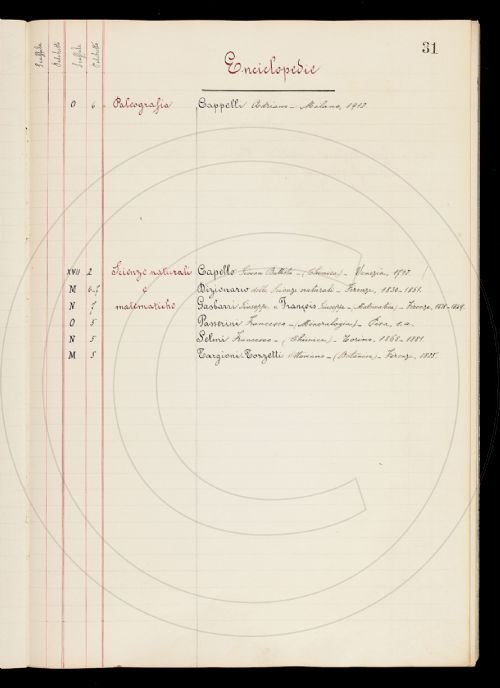 31
Scaffale Palchetto Scaffale Palchetto
Enciclopedie
O 6 Paleografia Cappelli Adriano - Milano, 1912
XVII 2 Scienze naturali Capello Giovan Battista - (Chimica) - Venezia,
M 6-7 e Dizionario delle Scienze naturali - Firenze, 1830-1851.
N 7 matematiche Gasbarri Giuseppe e François Giuseppe - Matematica) - Firenze,
O 5 Passerini Francesco - (Mineralogia) - Pisa, s.a.
N 5 Selmi Francesco - (Chimica) - Torino, 1868-1881
M 5 Targioni Tozzetti Ottaviano - (Botanica) - Firenze, 1825.